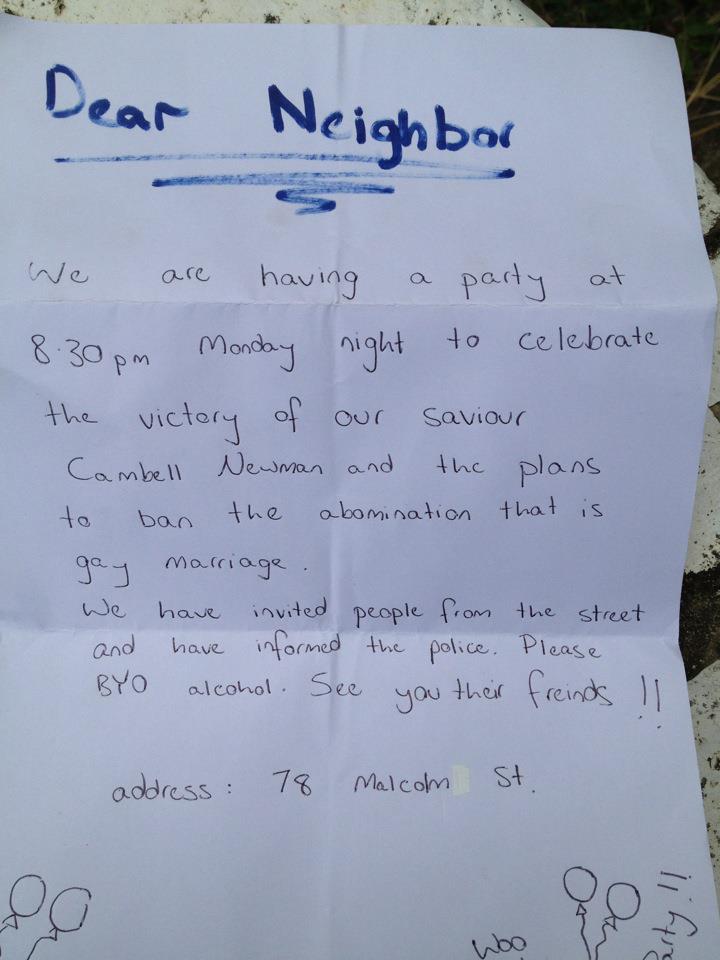 Dear Neighbor
We are having a party at
8.30pm Monday night to celebrate
the victory of our saviour
Cambell Newman and the plans
to ban the abomination that is
gay marriage.
We have invited people from the street
and have informed the police. Please
BYO alcohol. See you their freinds !!
address: 78 Malcolm St.
Woo